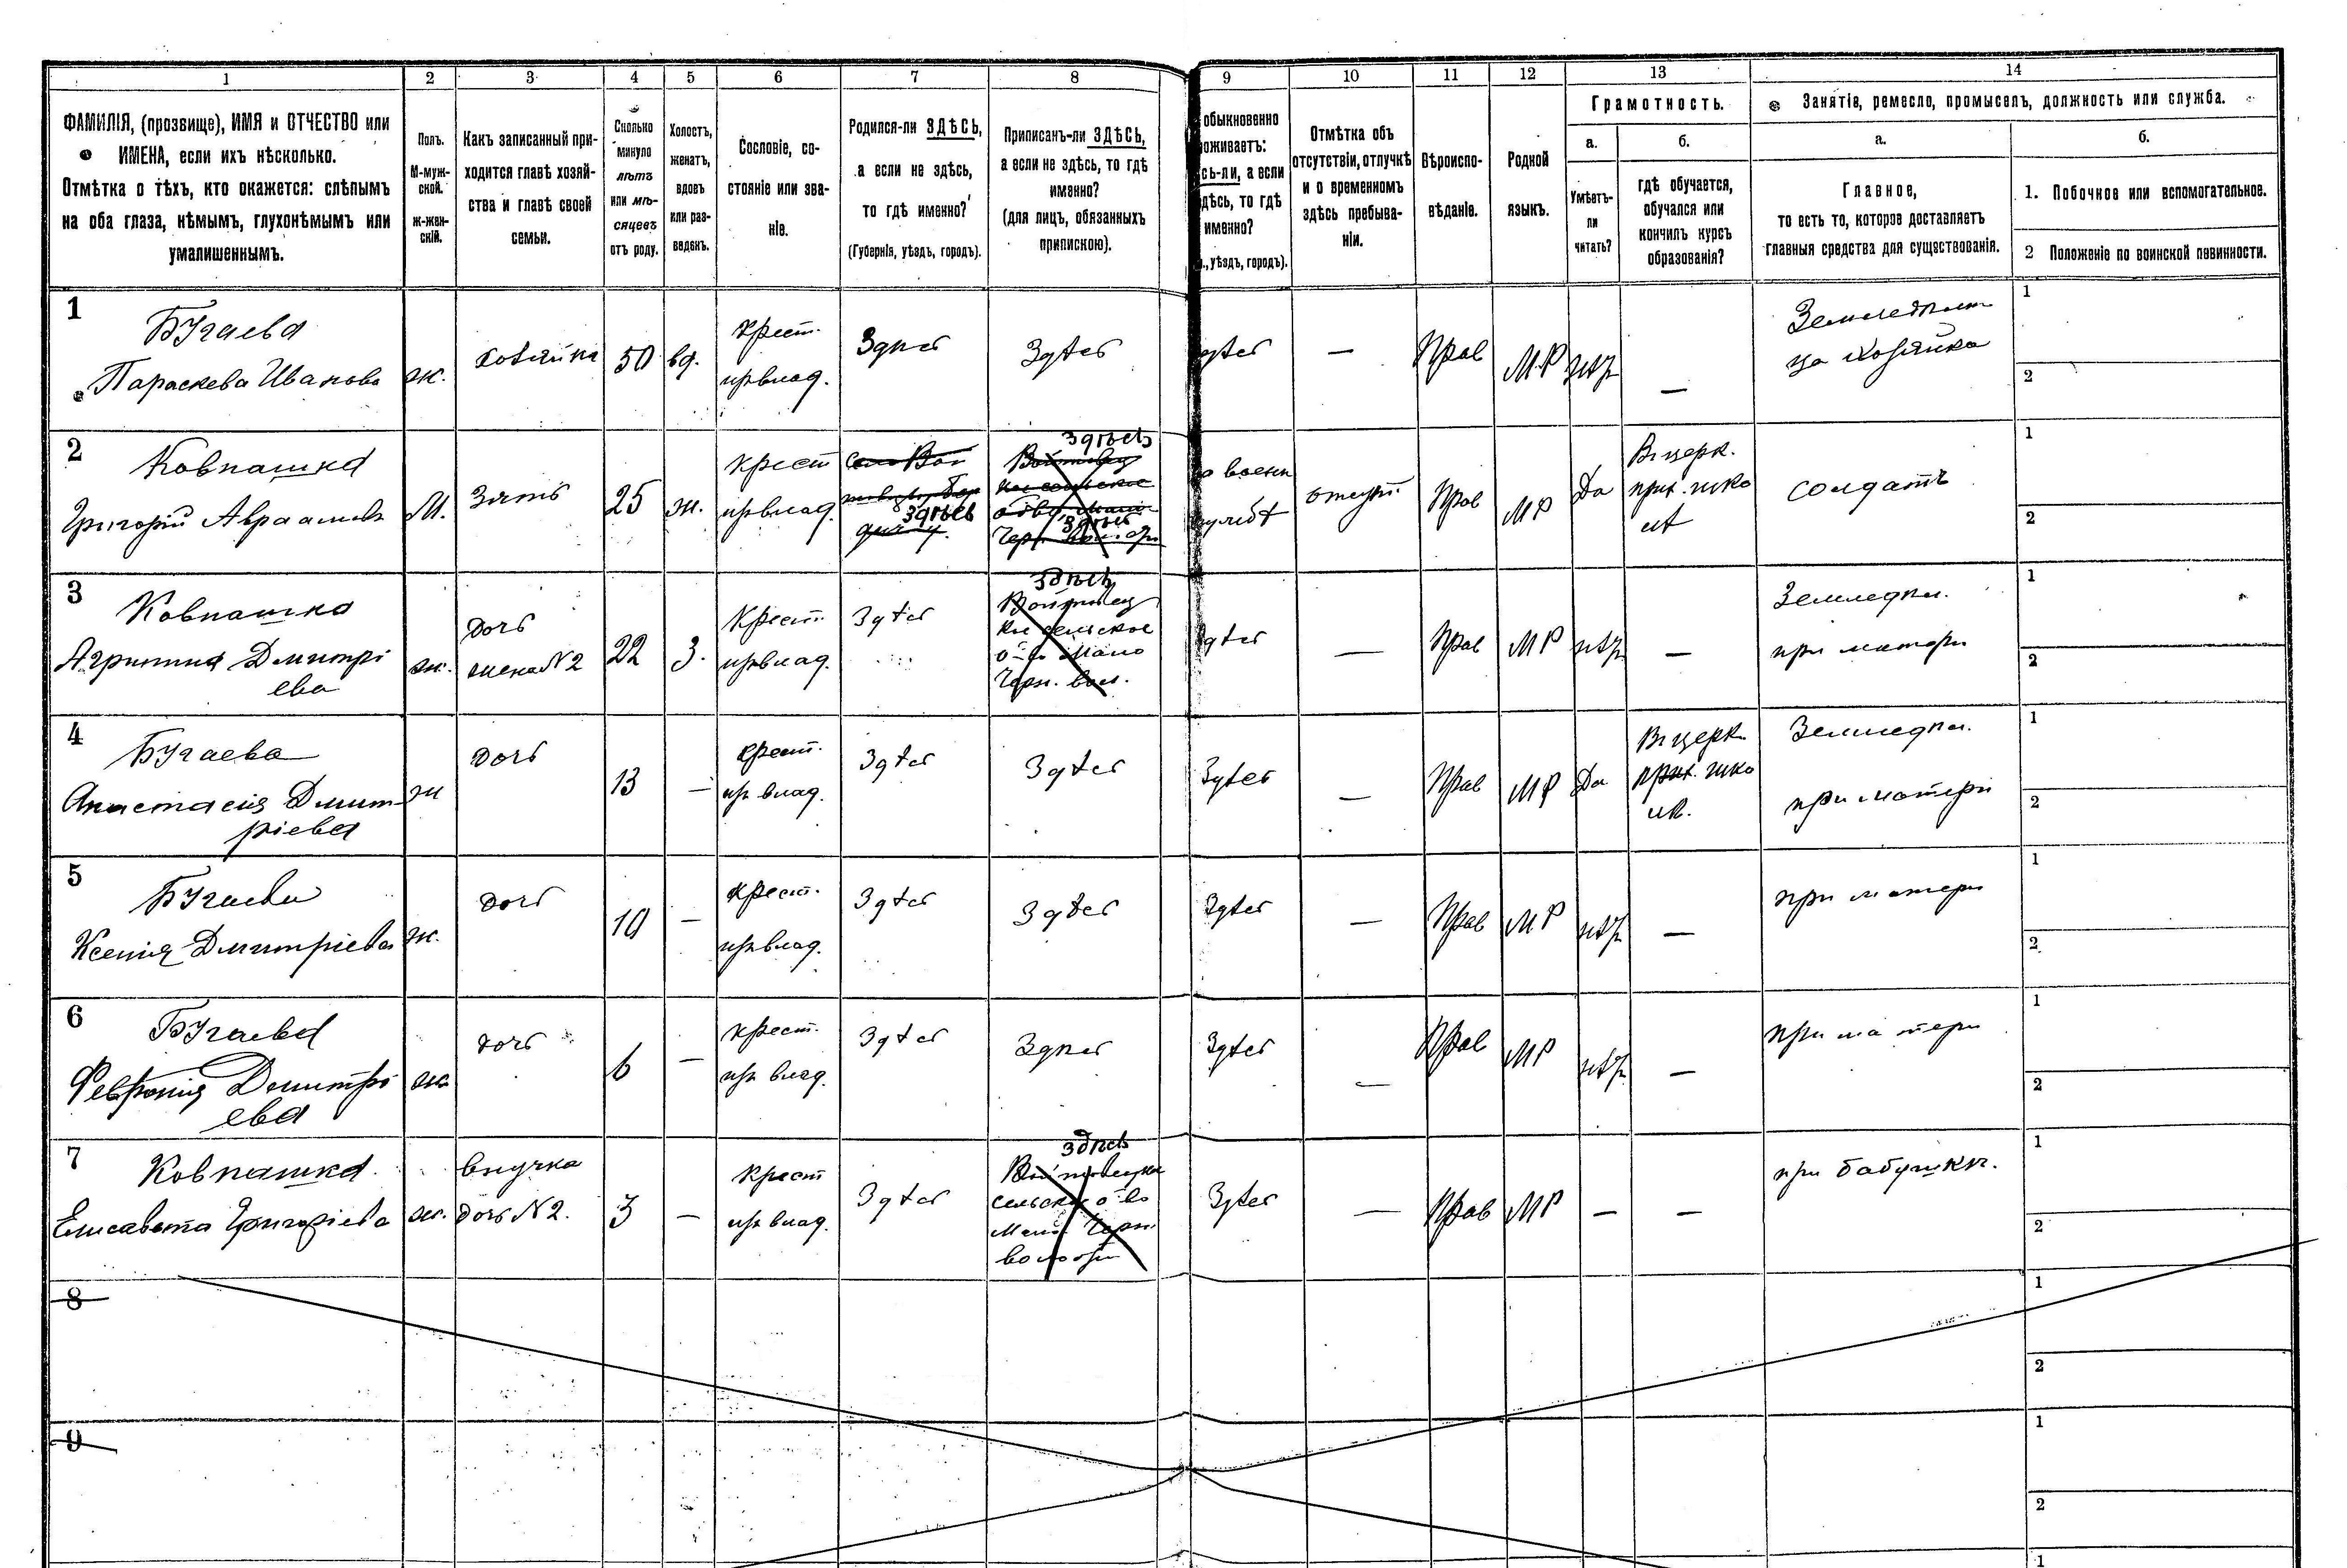 1 2 3 4 5 6 7 8 9 10 11 12 13 14
ФАМИЛІЯ, (прозвище), ИМЯ и ОТЧЕСТВО или
ИМЕНА, если ихъ нѣсколько.
Отмѣтка о тѣхъ, кто окажется: слѣпымъ
на оба глаза, нѣмымъ, глухонѣмымъ или
умалишеннымъ.
Полъ.
М-муж-
ской.
ж-жен-
скій.
Какъ записанный при-
ходится главѣ хозяй-
ства и главѣ своей
семьи.
Сколько
минуло
лѣтъ
или мѣ-
сяцевъ
отъ роду.
Холостъ,
женатъ,
вдовъ
или раз-
веденъ.
Сословіе, со-
стояніе или зва-
ніе.
Родился-ли ЗДѢСЬ,
а если не здѣсь,
то гдѣ именно?
(Губернія, уѣздъ, городъ).
Приписанъ-ли ЗДѢСЬ,
а если не здѣсь, то гдѣ
именно?
(для лицъ, обязанныхъ
припискою).
обыкновенно
оживаетъ:
сь-ли, а если
дѣсь, то гдѣ
именно?
., уѣздъ, городъ).
Отмѣтка объ
отсутствіи, отлучкѣ
и о временномъ
здѣсь пребыва-
ніи.
Вѣроиспо-
вѣданіе.
Родной
языкъ.
Грамотность.
а.
Умѣетъ-
ли
читать?
б.
гдѣ обучается,
обучался или
кончилъ курсъ
образованія?
Занятіе, ремесло, промыселъ, должность или служба.
а.
Главное,
то есть то, которое доставляетъ
главныя средства для существованія.
б.
1. Побочное или вспомогательное.
2 Положеніе по воинской повинности.
1
Бугаева
Параскева Иванова
ж.
хозяйка
50
вд.
крест.
изъ влад.
Здѣсь
Здѣсь
дѣсь
—
Прав
М.Р
нѣтъ
—
Земледѣлит
ца хозяйка
1
2
2
Ковпашка
Григорій Авраамовъ
М.
Зять
25
ж.
крест
изъ влад.
Здѣсь
Здѣсь
военн
служб
отсут.
Прав
МР
Да
Въ церк.
прих. шко
лѣ
солдатъ
1
2
3
Ковпашка
Агрипина Дмитрі
ева
ж.
дочь
жена N2
22
З.
Крест.
изъ влад.
Здѣсь
Здѣсь
сельское
о-во Мало
Черн. вол.
дѣсь
—
Прав
МР
нѣтъ
—
Земледѣл.
при матери
1
2
4
Бугаева
Анастасія Дмит
ріева
ж
дочь
13
—
крест.
изъ влад.
Здѣсь
Здѣсь
Здѣсь
—
Прав
МР
Да
Въ церк.
прих. шко
лѣ.
Земледѣл.
при матери
1
2
5
Бугаева
Ксенія Дмитріева
ж.
дочь
10
—
крест.
изъ влад.
Здѣсь
Здѣсь
Здѣсь
—
Прав
МР
нѣтъ
—
при матери
1
2
6
Бугаева
Февронія Дмитрі
ева
ж
дочь
6
—
крест.
изъ влад.
Здѣсь
Здѣсь
Здѣсь
—
Прав
МР
нѣтъ
—
при матери
1
2
7
Ковпашка
Елисавета Григоріева
ж.
внучка
дочь N2.
3
—
крест
изъ влад.
Здѣсь
Здѣсь
сельск. о-во
Мало Черн
волости
Здѣсь
—
Прав
МР
—
—
при бабушкѣ.
1
2
8
1
2
9
1
2
1